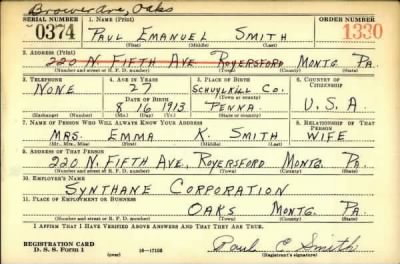 Brower Ave, Oaks
SERIAL NUMBER 1. NAME (Print) ORDER NUMBER
0374 PAUL EMANUEL SMITH 1330
(First) (Middle) (Last)
2. ADDRESS (Print)
220 N. FIFTH AVE ROYERSFORD MONTG PA.
(Number and street or R. F. D. number) (Town) (County) (State)
3. TELEPHONE 4. AGE IN YEARS 5. PLACE OF BIRTH 6. COUNTRY OF CITIZENSHIP
NONE 27 SCHUYLKILL CO.
DATE OF BIRTH
8 16 1913 PENNA. U.S.A.
(Exchange) (Number) (Mo.) (Day) (Yr.) (State or country)
7. NAME OF PERSON WHO WILL ALWAYS KNOW YOUR ADDRESS 8. RELATIONSHIP OF THAT PERSON
MRS. EMMA K. SMITH WIFE
(Mr., Mrs., Miss) (First) (Middle) (Last)
9. ADDRESS OF THAT PERSON
220 N. FIFTH AVE, ROYERSFORD MONTG. PA.
(Number and street or R. F. D. number) (Town) (County) (State)
10. EMPLOYER'S NAME
SYNTHANE CORPORATION
11. PLACE OF EMPLOYMENT OR BUSINESS
OAKS MONTG. PA.
(Number and street or R. F. D. number) (Town) (County) (State)
I AFFIRM THAT I HAVE VERIFIED ABOVE ANSWERS AND THAT THEY ARE TRUE.
REGISTRATION CARD
D. S. S. Form 1 (over) 16-17105 Paul E. Smith
(Registrant's signature)